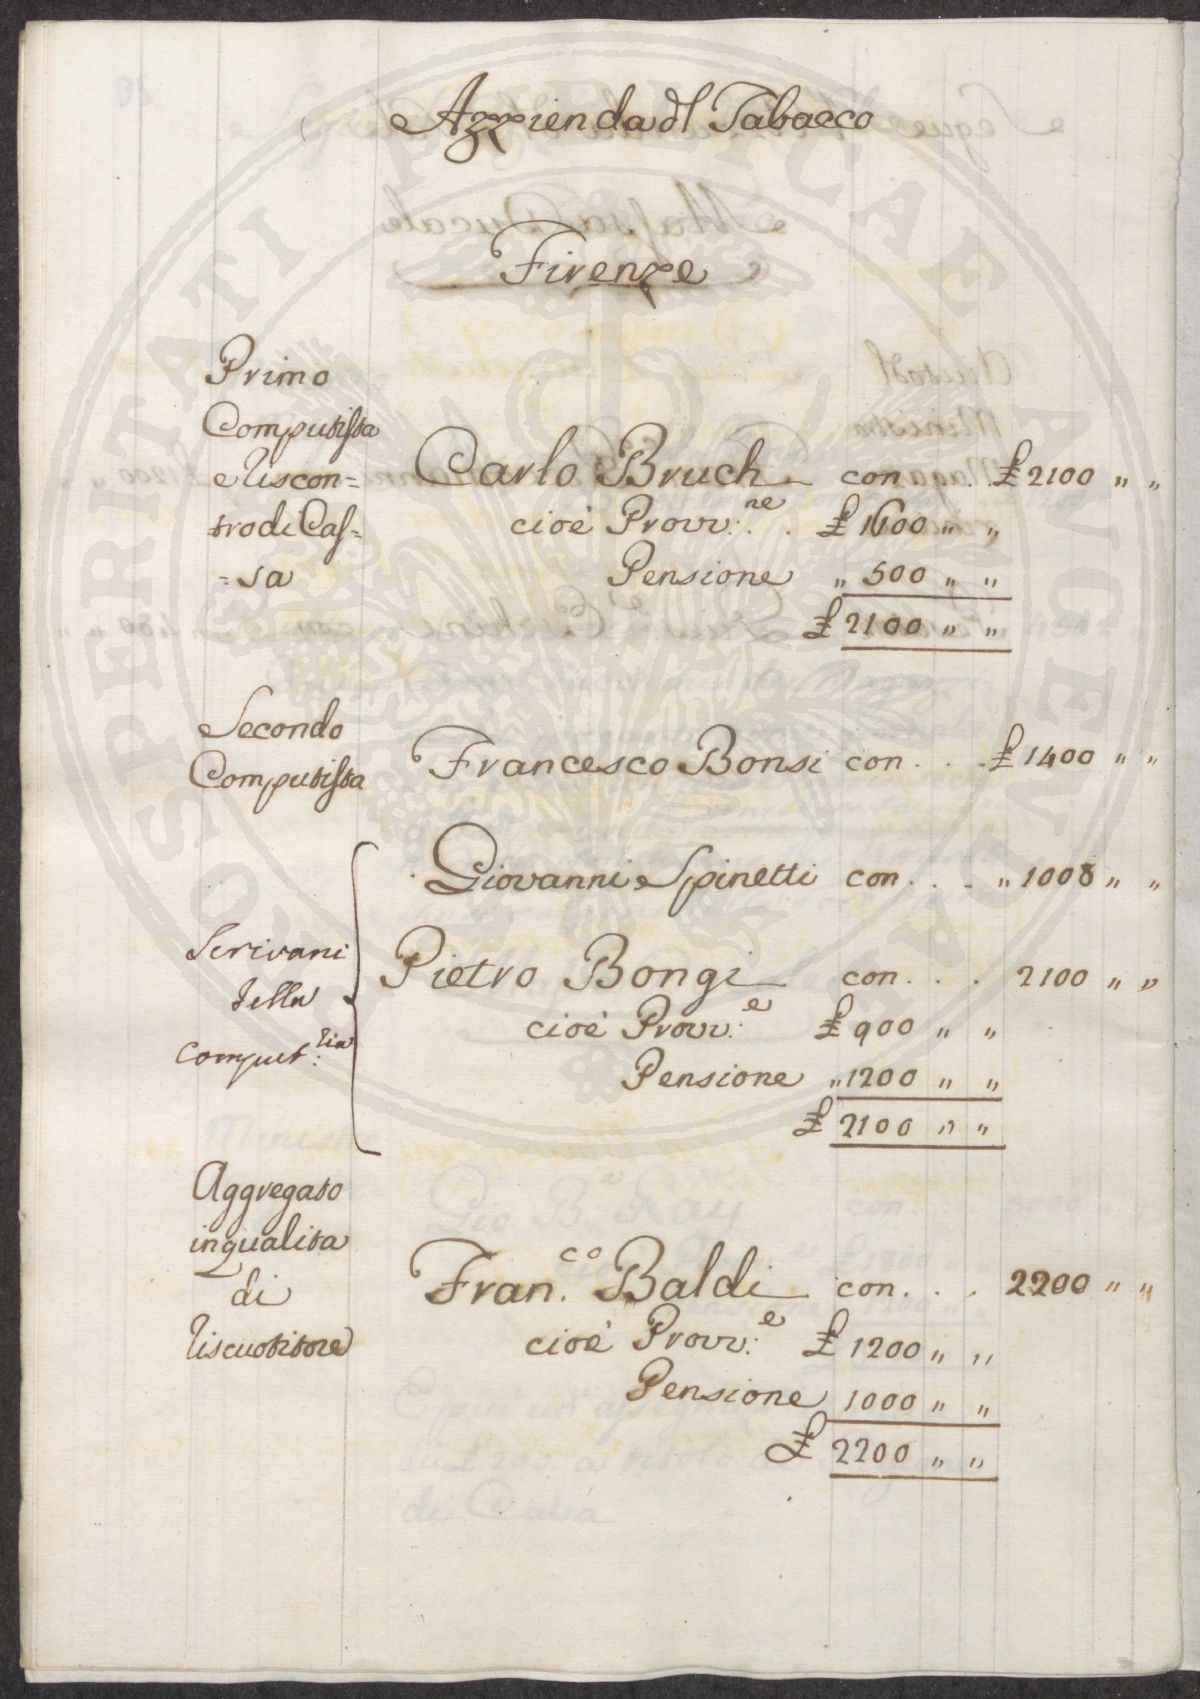 Azzienda dl Tabacco
Firenze
Primo
Computista
e Riscon=
tro di Cas=
=sa
Carlo Bruch con . . £ 2100 " "
cioè Provv:ne . . £ 1600 " "
Pensione " 500 " "
£ 2100 " "
Secondo
Computista
Francesco Bonsi con . . . £ 1400 " "
Giovanni Spinetti con . . . " 1008 " "
Scrivani
della
Comput:ria
Pietro Bongi con . . . 2100 " "
cioè Provv:e £ 900 " "
Pensione " 1200 " "
£ 2100 " "
Aggregato
in qualita
di
riscuotitore
Fran.co Baldi con . . . 2200 " "
cioè Provv:e £ 1200 " "
Pensione 1000 " "
£ 2200 " "
PROSPERITATI PUBLICAE AUGENDAE